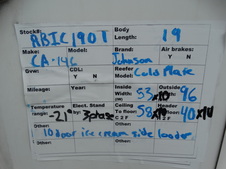 Stock#: ABIC190T Body Length: 19
Make: CA-146 Model: Brand: Johnson Air brakes: Y N
Gvw: CDL: Y N Reefer Model: Cold Plate
Mileage: Year: Inside Width: 53 Outside 96
Temperature range: -21° Elect. Stand by: 3phase Ceiling To floor: 58 Header floor: 40
Other: Other: Other:
10 door ice cream side loader
Other: